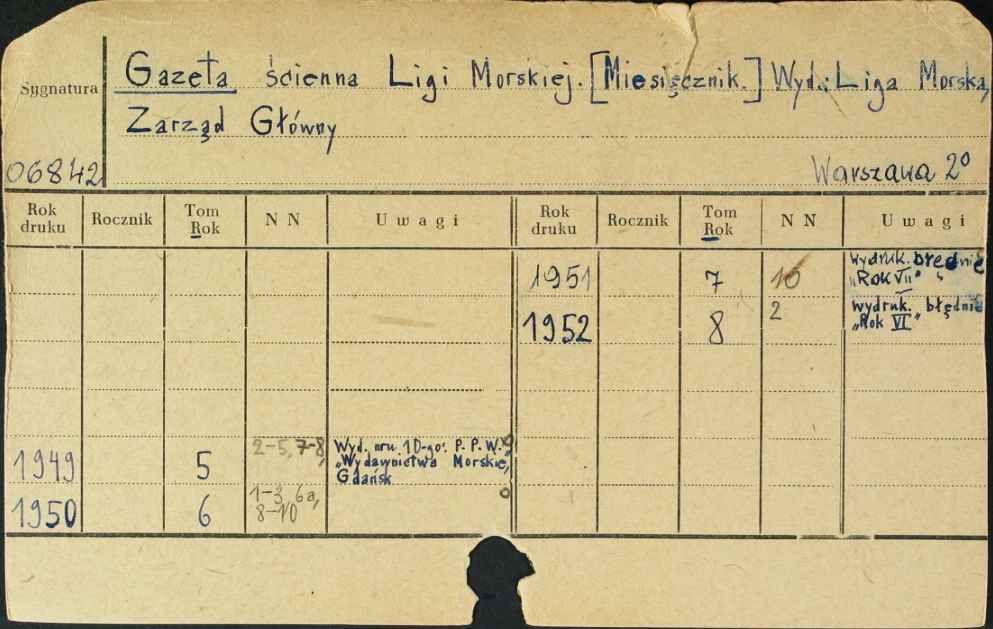 Sygnatura
06842
Gazeta ścienna Ligi Morskiej. [Miesięcznik.] Wyd.: Liga Morska,
Zarząd Główny
Warszawa 2°
Rok druku Rocznik Tom Rok NN Uwagi Rok druku Rocznik Tom Rok NN Uwagi
1951 7 10 wydruk. błędnie
„Rok VII"
1952 8 2 wydruk. błędnie
„Rok VI"
1949 5 2-5, 7-8, Wyd. nru 10-go: P.P.W.
„Wydawnictwa Morskie,
Gdańsk
1950 6 1-3, 6a,
8-10